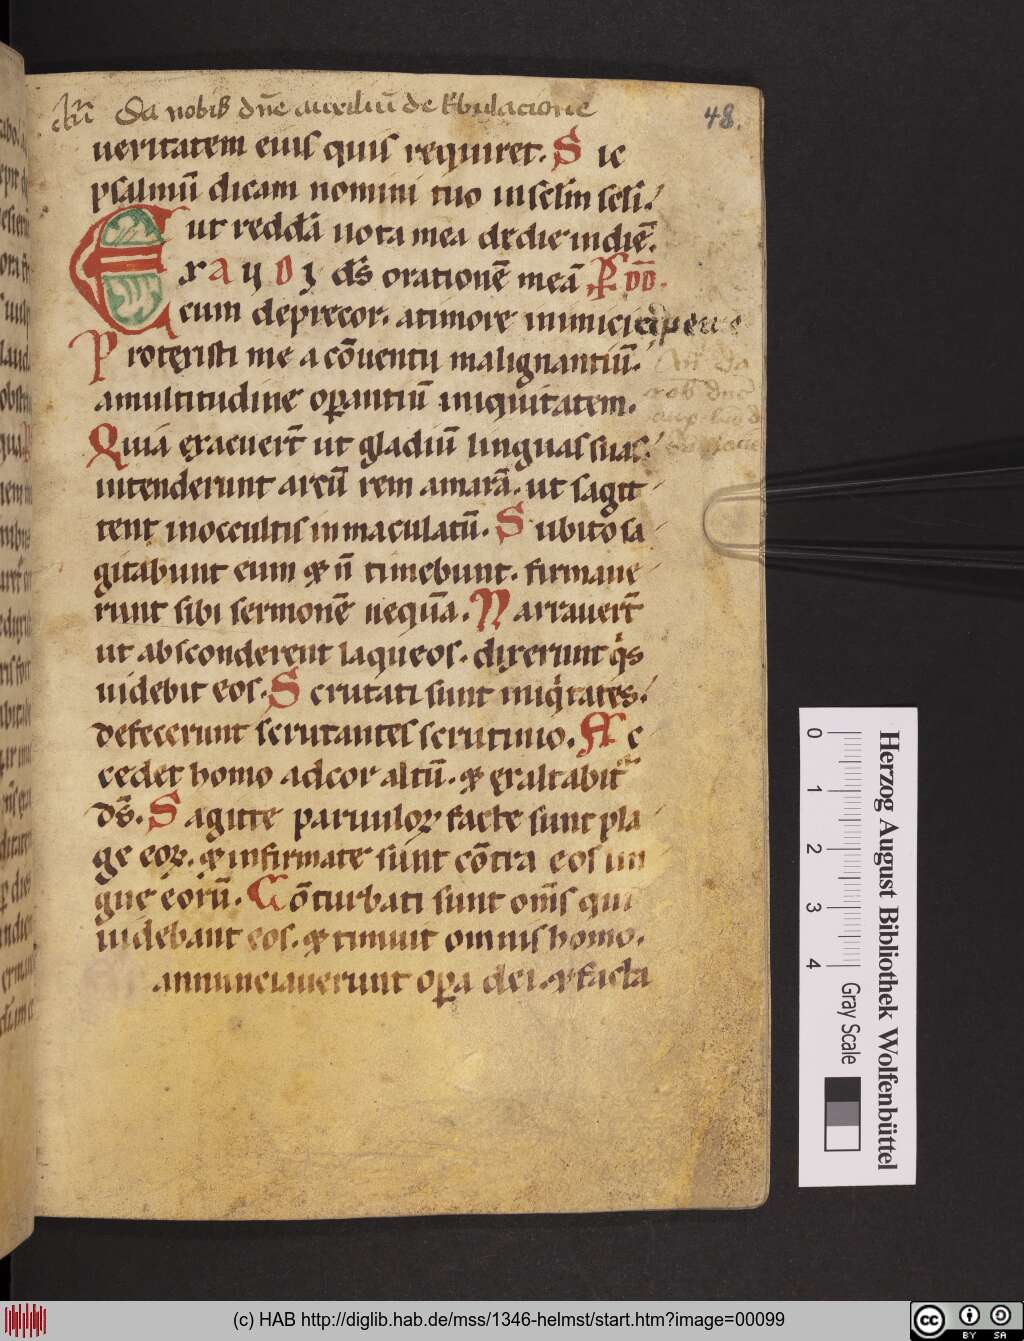 Da nobis dn̄e auxiliū de t̄bulacione
48.
ueritatem eius quis requiret. S ic
psalmū dicam nomini tuo inselm̄ seli.
ut reddā uota mea dedie indiē.
E xaudi ds̄ orationē meā P̄S DD̄.
cum deprecor. atimore inimici eripe
P rotexisti me a cōuentu malignantiū.
amultitudine op̄antiū iniquitatem.
Quia exacuer̄t ut gladiū linguas suas.
intenderunt arcū rem amarā. ut sagit
tent inoccultis inmaculatū. S ubito sa
gitabunt eum & n̄ timebunt. firmaue
runt sibi sermonē nequā. N arrauer̄t
ut absconderent laqueos. dixerunt qis
uidebit eos. S crutati sunt iniqitates.
defecerunt scrutantes scrutinio. A c
cedet homo adcor altū. & exaltabit̃
ds̄. S agitte paruuloꝝ facte sunt pla
ge eoꝝ. & infirmate sunt cōtra eos lin
gue eorū. Cōturbati sunt om̄s qui
uidebant eos. & timuit omnis homo.
annunciauerunt op̄a dei. & facta
0 1 2 3 4
Gray Scale
Herzog August Bibliothek Wolfenbüttel
(c) HAB http://diglib.hab.de/mss/1346-helmst/start.htm?image=00099
cc BY SA